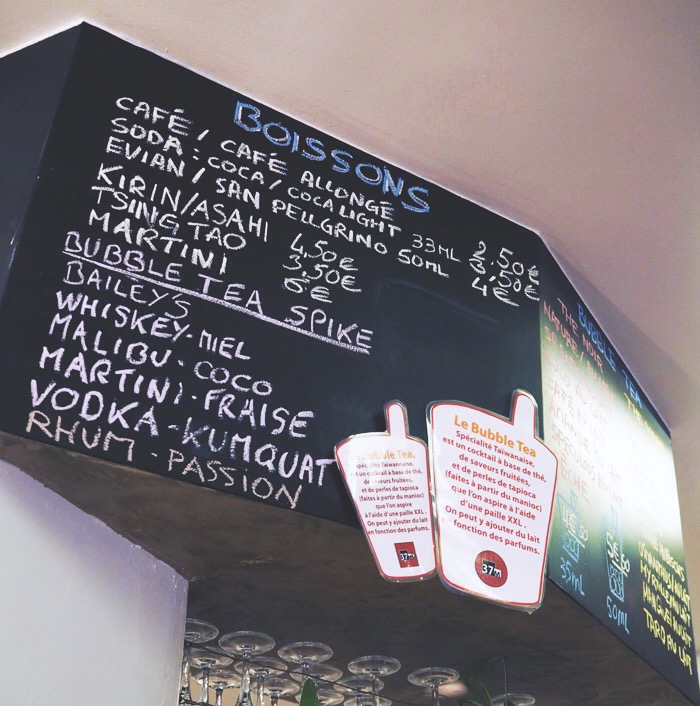 BOISSONS
CAFÉ / CAFÉ ALLONGÉ 2,50€
SODA : COCA / COCA LIGHT 33ML 3,50€
EVIAN / SAN PELLGRINO 50ML 4€
KIRIN/ASAHI 4,50€
TSING TAO 3,50€
MARTINI 6€
BUBBLE TEA SPIKE
BAILEY'S
WHISKEY-MIEL
MALIBU - COCO
MARTINI - FRAISE
VODKA - KUMQUAT
RHUM - PASSION
Bubble Tea,
Spécialité Taïwanaise,
est un cocktail à base de thé,
de saveurs fruitées,
et de perles de tapioca
(faites à partir du manioc)
que l'on aspire
à l'aide d'une paille XXL.
On peut y ajouter du lait
en fonction des parfums.
37m
Le Bubble Tea
Spécialité Taiwanaise,
est un cocktail à base de thé,
de saveurs fruitées,
et de perles de tapioca
(faites à partir du manioc)
que l'on aspire à l'aide
d'une paille XXL.
On peut y ajouter du lait
fonction des parfums.
37m
BUBBLE TEA
THE NOIR
NATURE /
35mL
50mL
TARO AU LAIT